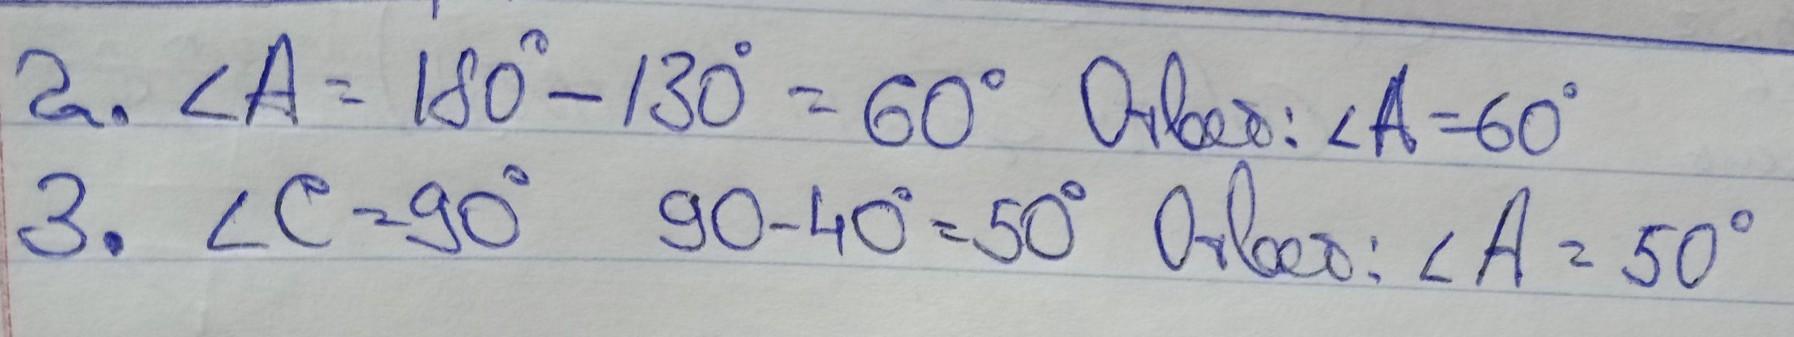 2. ∠A = 180° - 130° = 60° Ответ: ∠A = 60°
3. ∠C = 90° 90 - 40° = 50° Ответ: ∠A = 50°